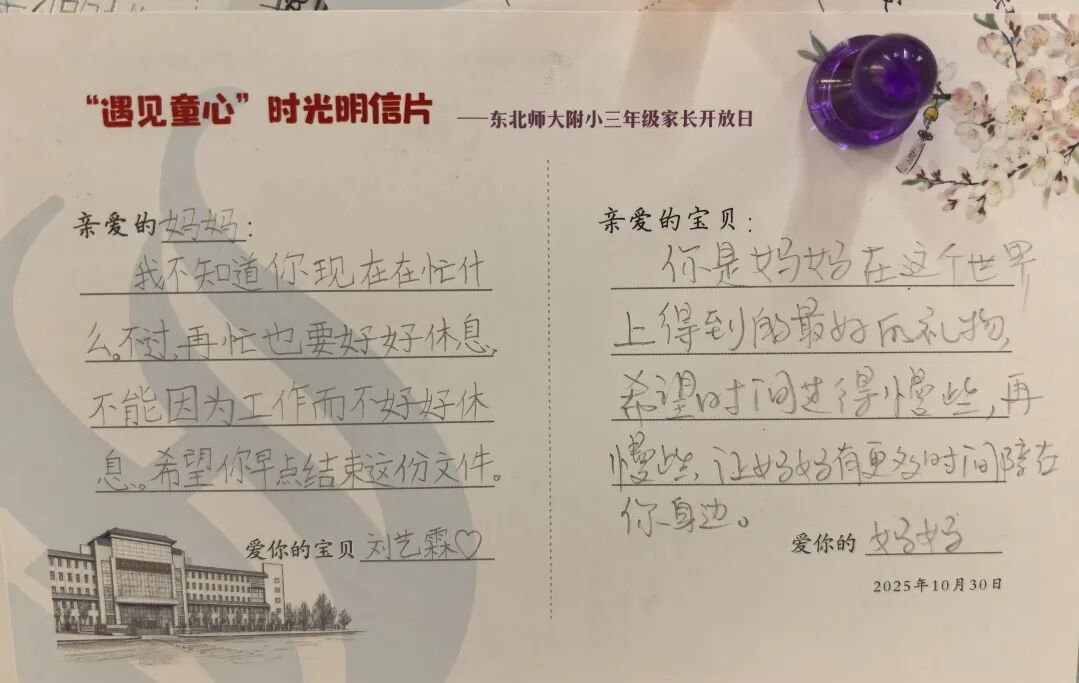 “遇见童心”时光明信片
——东北师大附小三年级家长开放日
亲爱的妈妈:
我不知道你现在在忙什
么。不过,再忙也要好好休息,
不能因为工作而不好好休
息。希望你早点结束这份文件。
爱你的宝贝刘艺霖♡
亲爱的宝贝:
你是妈妈在这个世界
上得到的最好的礼物,
希望时间走得慢些,再
慢些,让妈妈有更多时间陪在
你身边。
爱你的妈妈
2025年10月30日